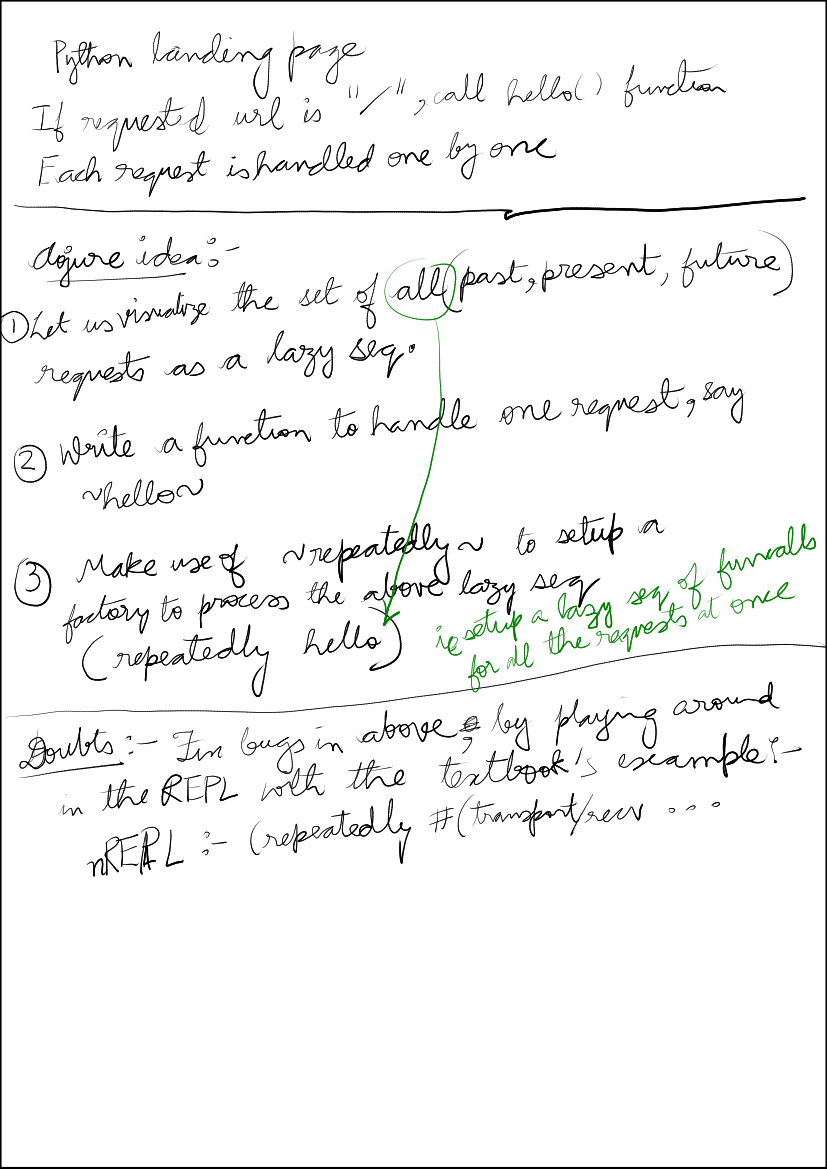 Python landing page
If requested url is "/", call hello() function
Each request is handled one by one
Clojure idea:-
① Let us visualize the set of all (past, present, future)
requests as a lazy seq.
② Write a function to handle one request, say
~hello~
③ Make use of ~repeatedly~ to setup a
factory to process the above lazy seq
(repeatedly hello)
ie setup a lazy seq of funcalls
for all the requests at once
Doubts:- Fin bugs in above, by playing around
in the REPL with the textbook's example:-
nREPL :- (repeatedly #(transport/recv ...